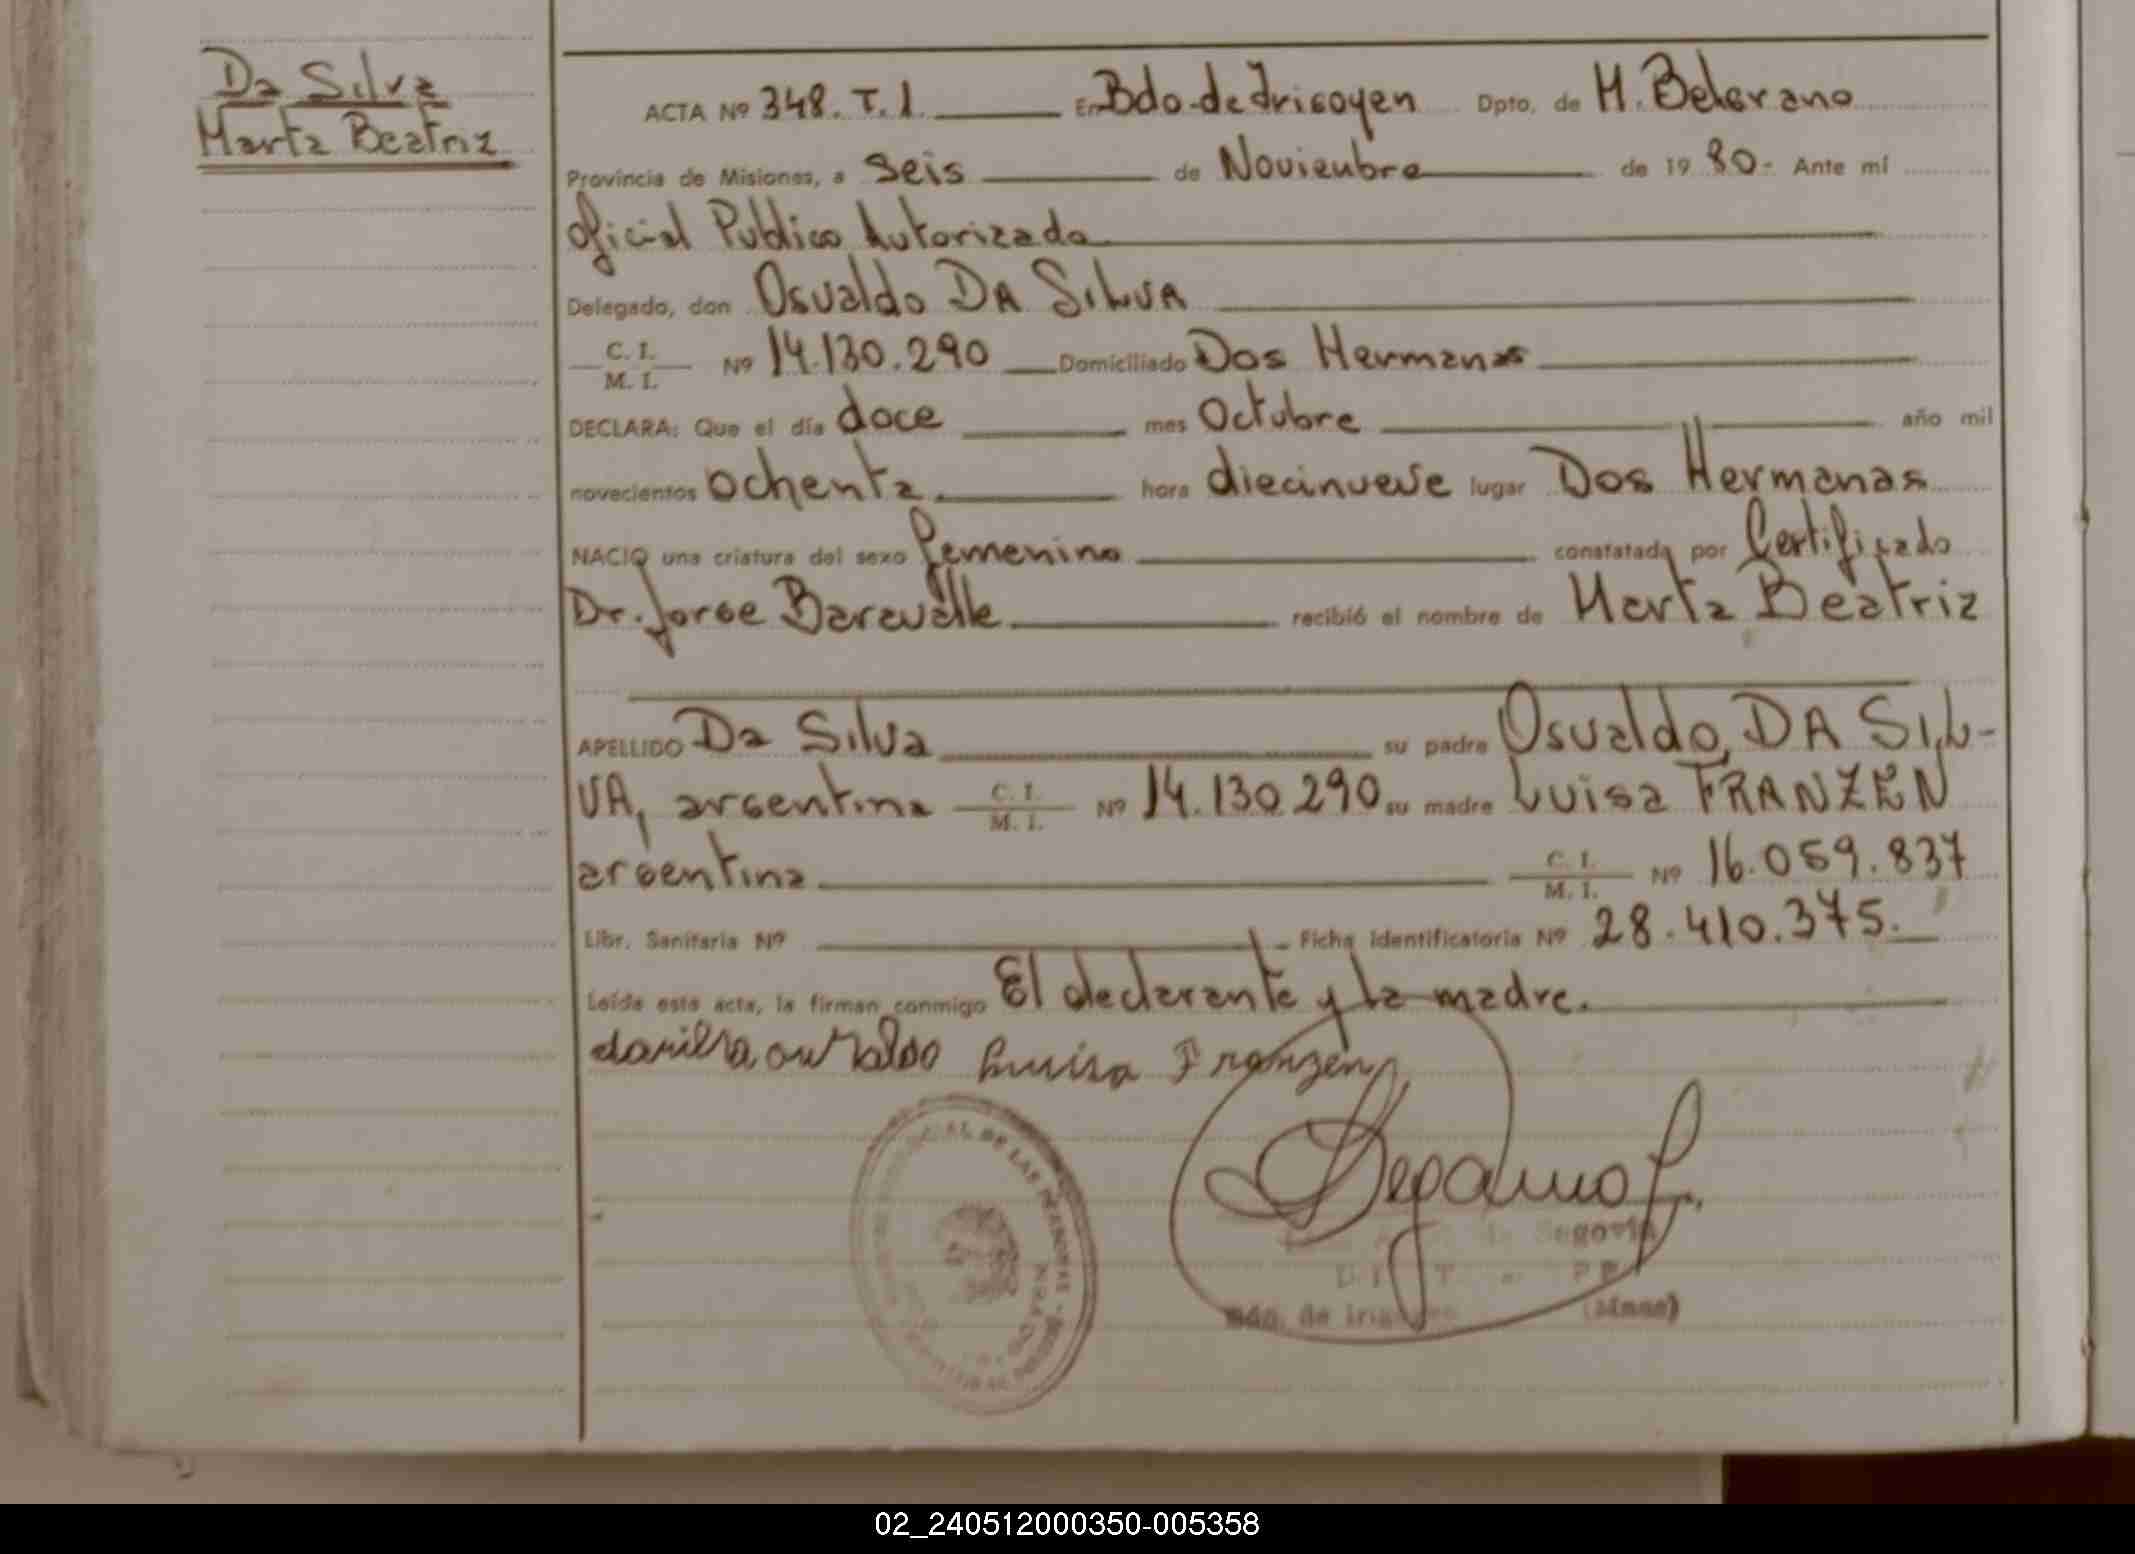 Da Silva
Marta Beatriz
ACTA Nº 348. T. I. En Bdo. de Irigoyen Dpto. de M. Belgrano
Provincia de Misiones, a Seis de Noviembre de 19 80.- Ante mí
Oficial Publico Autorizado
Delegado, don Osvaldo DA SILVA
C. I. / M. I. Nº 14.130.290 Domiciliado Dos Hermanas
DECLARA: Que el día doce mes Octubre año mil
novecientos ochenta hora diecinueve lugar Dos Hermanas
NACIO una criatura del sexo femenino constatada por Certificado
Dr. Jorge Baravalle recibió el nombre de Marta Beatriz
APELLIDO Da Silva su padre Osvaldo DA SIL-
VA, argentina C. I. / M. I. Nº 14.130.290 su madre Luisa FRANZEN
argentina C. I. / M. I. Nº 16.059.837
Libr. Sanitaria Nº Ficha Identificatoria Nº 28.410.375.
Leída esta acta, la firman conmigo El declarante y la madre.
Luisa Franzen
DE LAS PERSONAS
Segovia
Bdo. de Irigoyen (Mnes)
02_240512000350-005358